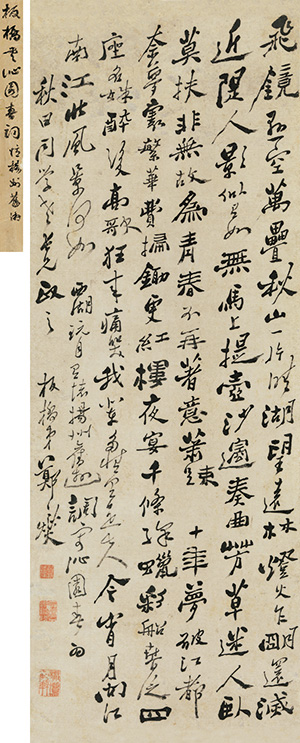 飛鏡懸空萬疊秋山一片晴湖望遠林燈火乍明還滅
近隄人影似有如無馬上提壺沙邊奏曲芳草迷人臥
莫扶非無故為青春不再著意蕭疎 十年夢破江都
奈夢裏繁華費掃鋤更紅樓夜宴千條絳蠟彩船春泛四
座名姝醉後高歌狂來痛哭我輩多情有是夫 今宵月問江
南江北風景何如 西湖玩月有懷揚州舊遊 調寄沁園春為
秋田同學老長兄政之 板橋弟鄭燮
板橋書沁園春詞